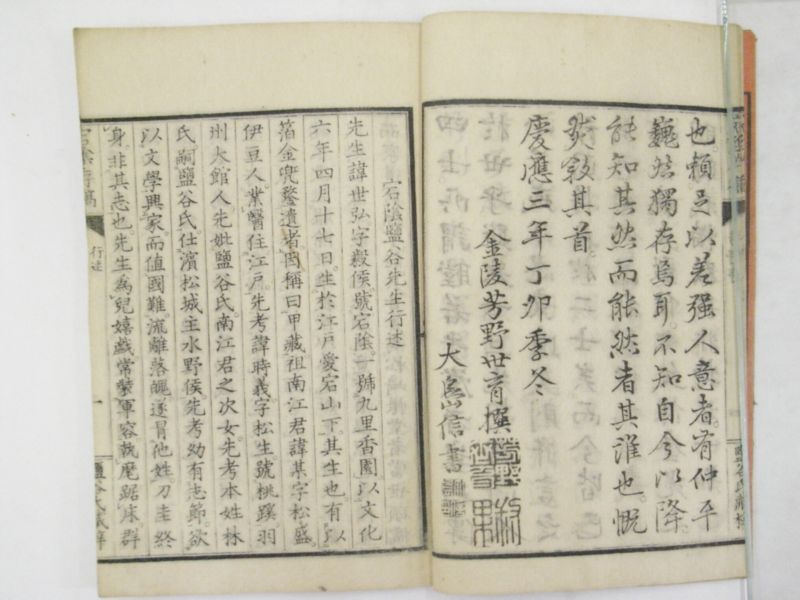 也賴足以差强人意者有仲平
巍然獨存焉耳不知自今以降
能知其然而能然者其誰也慨
然敘其首
慶應三年丁卯季冬
金陵芳野世育撰
大島信書
宕陰鹽谷先生行述
先生諱世弘字毅侯號宕陰一號九里香園以文化
六年四月十七日生於江戶愛宕山下其生也有以
箔金兜鍪遺者因稱曰甲藏祖南江君諱某字松盛
伊豆人業醫住江戶先考諱時義字松生號桃蹊羽
州大館人先妣鹽谷氏南江君之次女先考本姓林
氏嗣鹽谷氏仕濱松城主水野侯先考幼有志節欲
以文學興家而值國難流離落魄遂冒他姓刀圭終
身非其志也先生為兒嬉戲常裝軍容執麾踞床群
宕陰存稿
行述
一